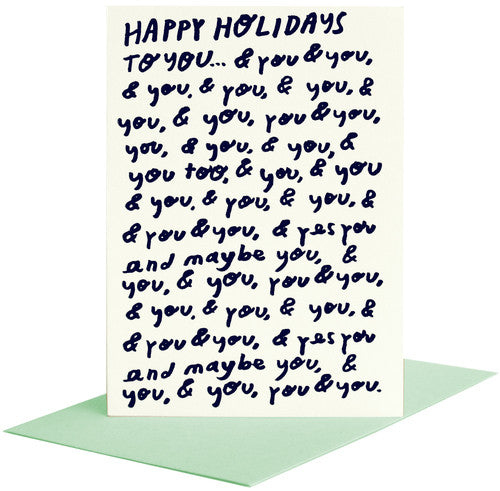 HAPPY HOLIDAYS
TO YOU... & you & you,
& you. & you, & you, &
you, & you, you & you,
you, & you. & you, &
you too, & you, & you
& you. & you, & you,
& you & you, & yes you
and maybe you, &
you, & you, you & you,
& you. & you, & you, &
& you & you, & yes you
and maybe you, &
you, & you, you & you.